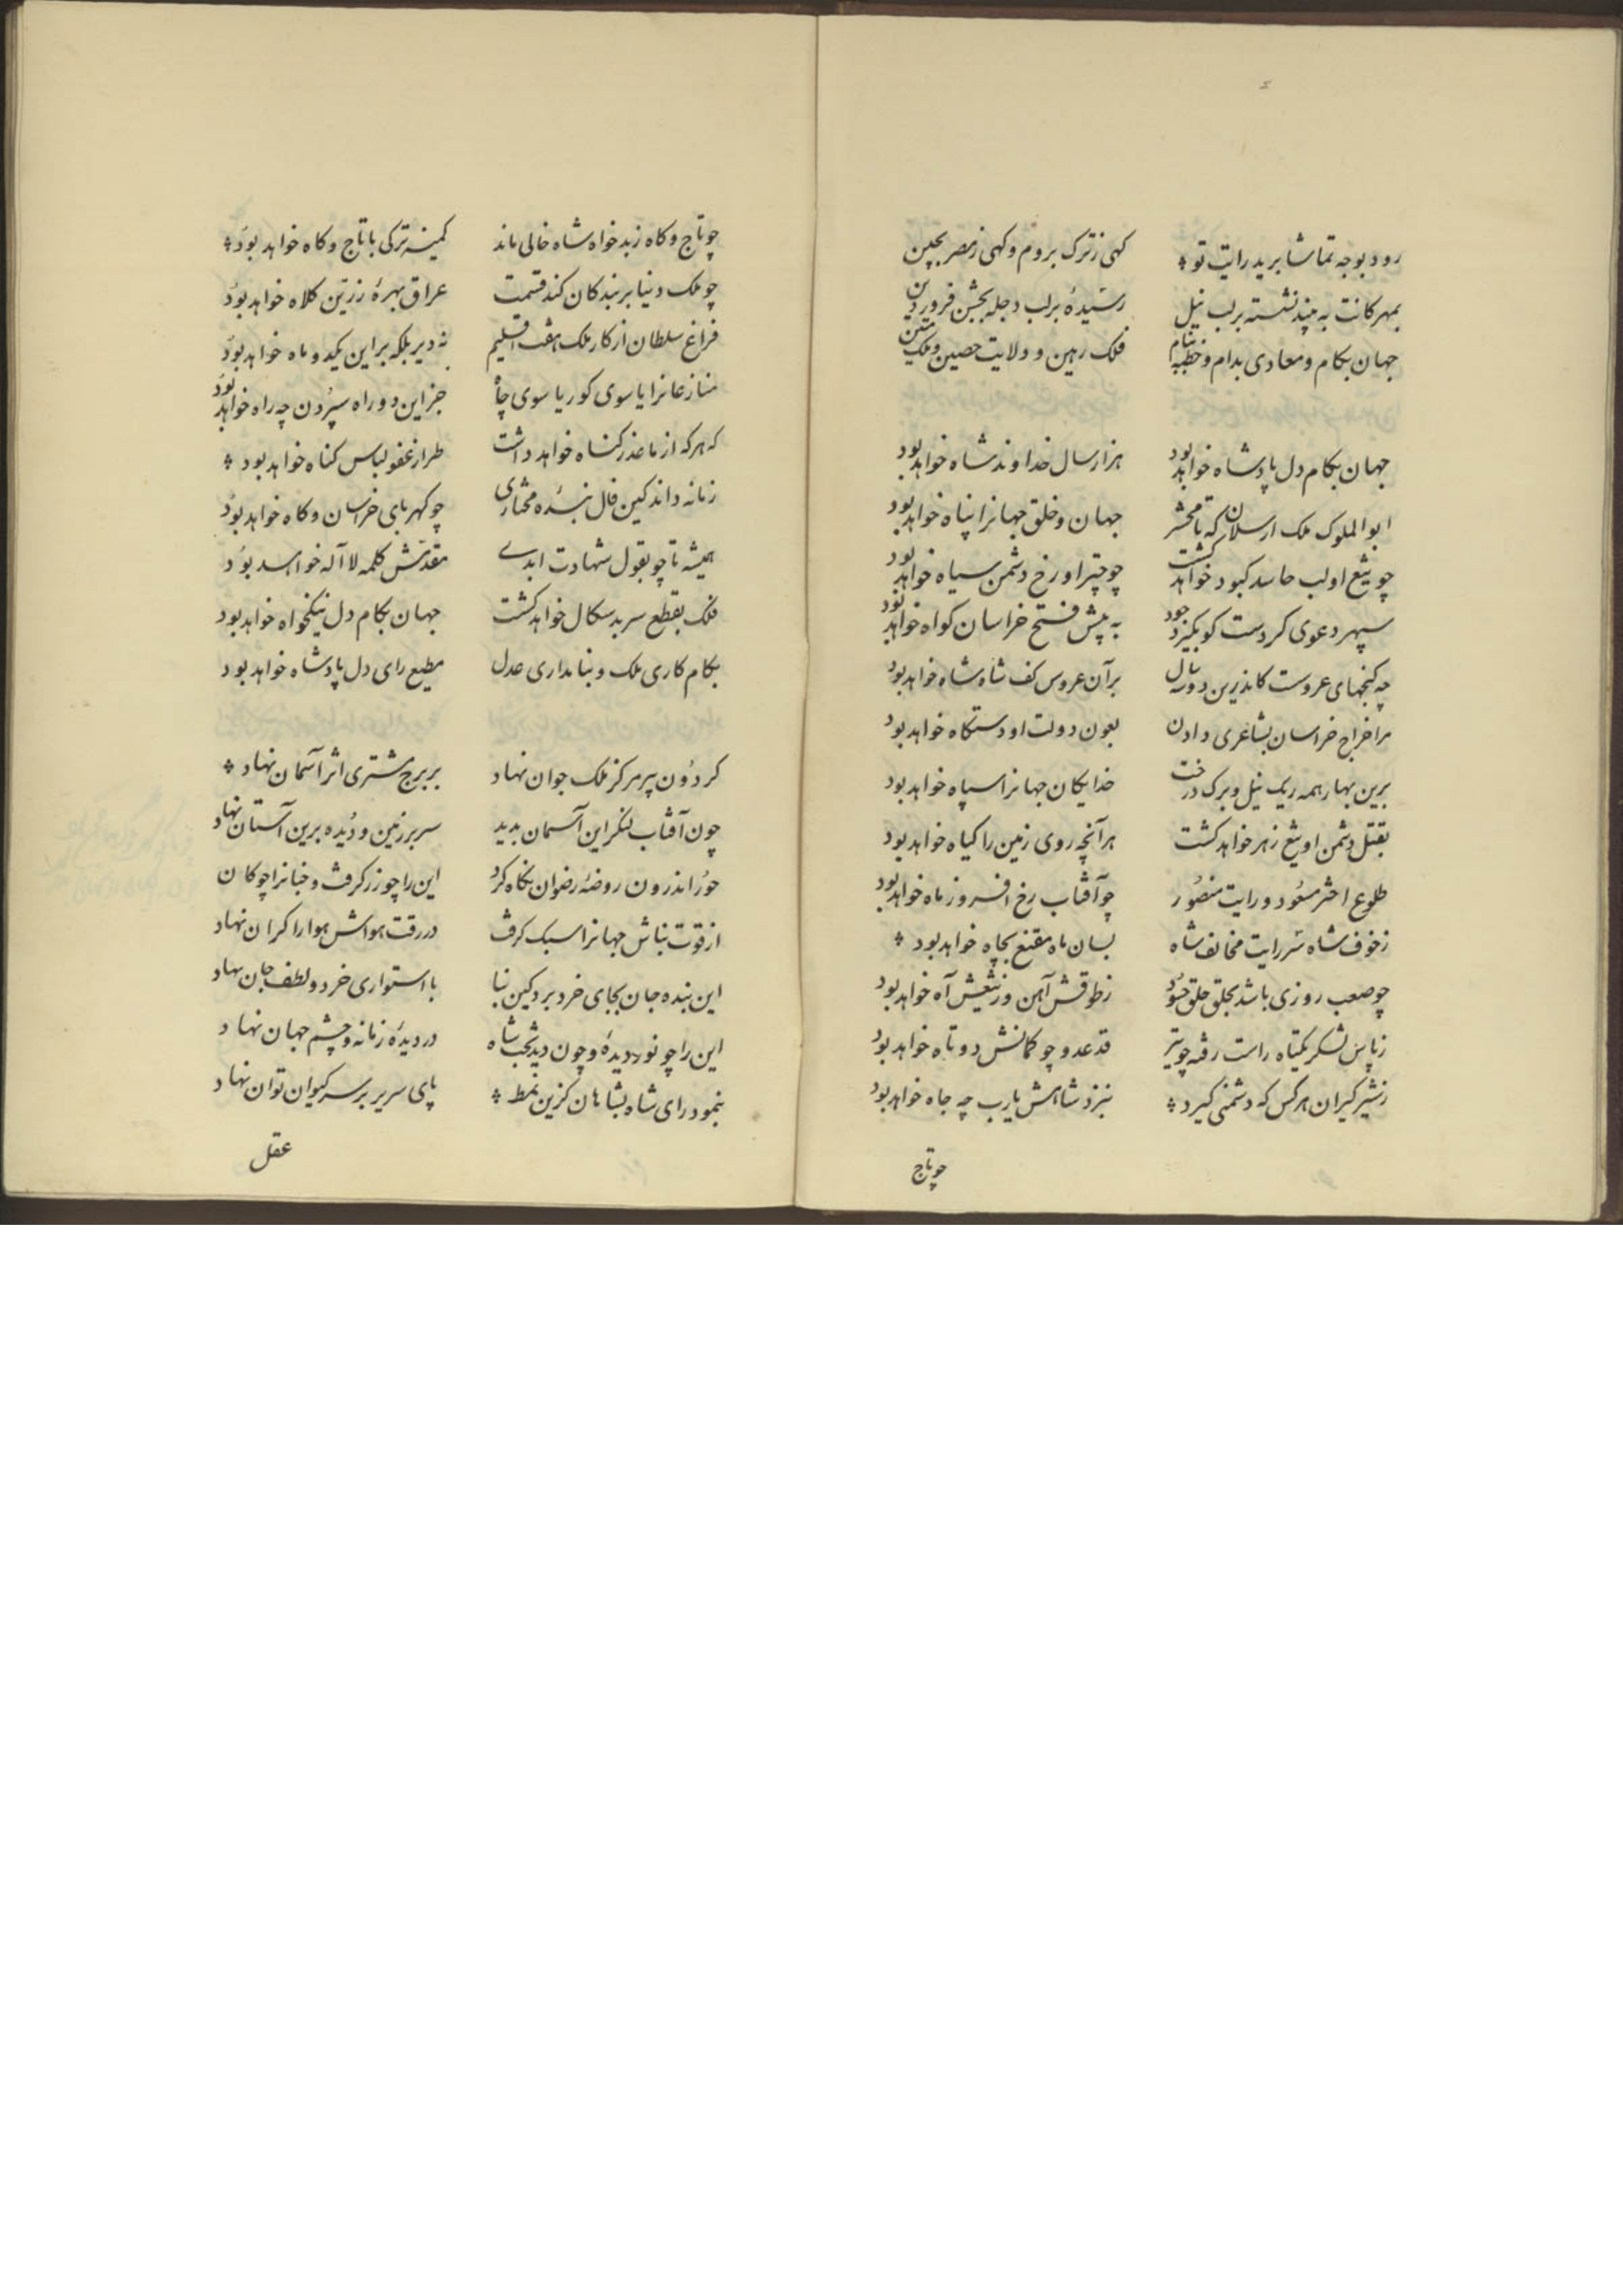 رود بوجه تماشا برید رایت تو کهی ز ترک بروم و کهی ز مصر بچین
بمهرکانت به بیند نشسته بر لب نیل رسیدهٔ بر لب دجله بجشن فروردین
جهان بکام و معادی بدام و خطبه بنام فلک رهین و ولایت حصین و ملک متین
جهان بکام دل پادشاه خواهد بود هزار سال خداوند شاه خواهد بود
ابوالملوک ملک ارسلان که تا محشر جهان و خلق جهانرا پناه خواهد بود
چو تیغ او لب حاسد کبود خواهد کشت چو چتر او رخ دشمن سیاه خواهد بود
سپهر دعوی کردست کو بکیرد جود به پیش فتح خراسان کواه خواهد بود
چه کنجهای عروست کاندرین دو سال بر آن عروس کف شاه شاه خواهد بود
مرا خراج خراسان بشاعری دادن بعون دولت او دستکاه خواهد بود
برین بهار همه ریک نیل و برک درخت خدایکان جهانرا سپاه خواهد بود
بقتل دشمن او تیغ زهر خواهد کشت هر آنچه روی زمین را کیاه خواهد بود
طلوع اختر مسعود و رایت منصور چو آفتاب رخ افروز ماه خواهد بود
ز خوف شاه سر رایت مخالف شاه بسان ماه مقنع بچاه خواهد بود
چو صعب روزی باشد بحلق خلق حسود ز طوقش آهن وز تیغش آه خواهد بود
ز پاس لشکر یکتاه راست رفته چو تیر قد عدو چو کمانش دو تاه خواهد بود
ز شیر کیران هر کس که دشمنی کیرد بنزد شاهش یارب چه جاه خواهد بود
چو تاج
چو تاج و کاه ز بدخواه شاه خالی ماند کمینه ترکی با تاج و کاه خواهد بود
چو ملک دنیا بر بندکان کند قسمت عراق بهرهٔ زرین کلاه خواهد بود
فراغ سلطان از کار ملک هفت اقلیم نه دیر بلکه بر این یکدو ماه خواهد بود
منازعانرا یا سوی کور یا سوی چاه جز این دو راه سپردن چه راه خواهد بود
که هر که از ما عذر کناه خواهد داشت طراز عفو لباس کناه خواهد بود
زمانه داند کین فال بنده مختاری چو کهربای خراسان و کاه خواهد بود
همیشه تا چو بقول شهادت ابدی مقدمش کلمه لا اله خواهد بود
فلک بقطع سر بدسکال خواهد کشت جهان بکام دل نیکخواه خواهد بود
بکام کاری ملک و بنامداری عدل مطیع رای دل پادشاه خواهد بود
کردون پیر مرکز ملک جوان نهاد بر برج مشتری اثر آسمان نهاد
چون آفتاب لنکر این آسمان بدید سر بر زمین و دیده برین آستان نهاد
حور اندرون روضهٔ رضوان نکاه کرد این را چو زر کرفت و جنانرا چو کان
از قوت بناش جهانرا سبک کرفت در رقت هواش هوا را کران نهاد
این بنده جان بجای خرد برد کین بنا با استواری خرد و لطف جان نهاد
این را چو نور دیده و چون دید تخت شاه در دیدهٔ زمانه و چشم جهان نهاد
بنمود رای شاه بشاهان کزین نمط پای سریر بر سر کیوان توان نهاد
عقل